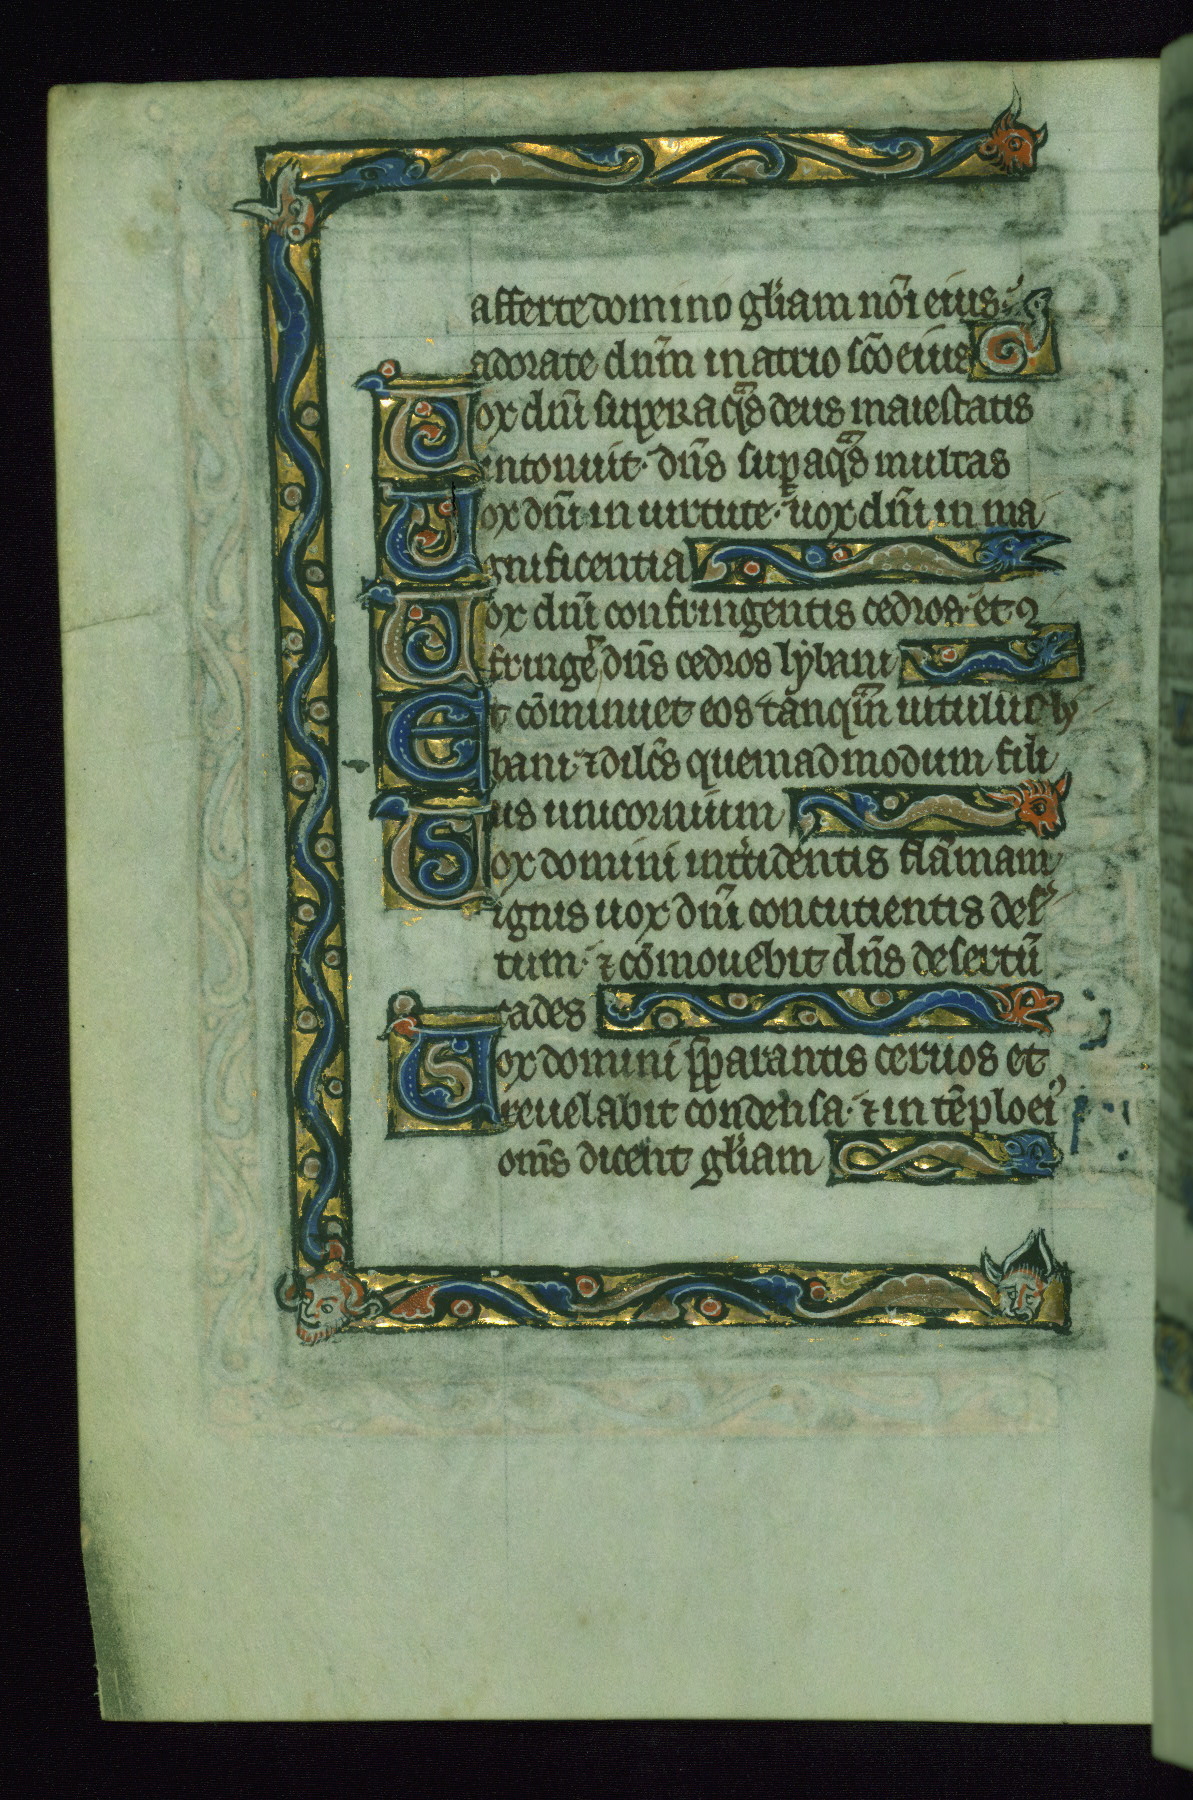 afferte domino gl̃iam nõi eius
adorate dñm in atrio sc̃o eius
Uox dñi super aq̃s deus maiestatis
intonuit· dñs sup aq̃s multas
Uox dñi in uirtute· uox dñi in ma
gnificentia
Uox dñi confringentis cedros· et ↄ
fringet dñs cedros lybani
Et cõminuet eos tanq̃m uitulũ ly
bani· ⁊ dilc̃s quemadmodum fili
us unicornium
Uox domini intcidentis flãmam
ignis uox dñi concutientis deser
tum· ⁊ cõmouebit dñs desertũ
cades
Uox domini p̃parantis ceruos et
reuelabit condensa· ⁊ in tẽplo ei᾿
om̃s dicent gl̃iam